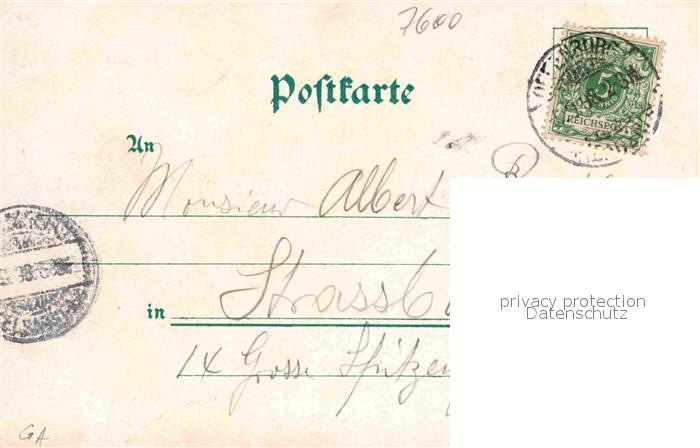 7600
5
REICHSPOST
Postkarte
An
Monsieur Albert
in Strassb
14 Grosse Spitzen
privacy protection
Datenschutz
GA